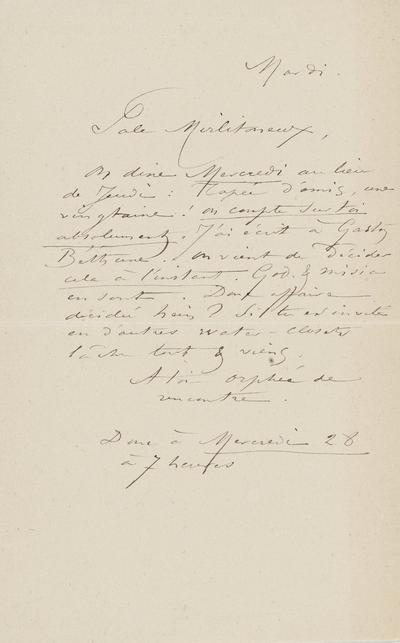 Mardi.
Pale Mirlitoneux,
On dine Mercredi au lieu
de Jeudi : Tapée d'amis, une
vingtaine ! on compte sur toi
absolument. J'ai écrit à Gaston
Béthune. on vient de décider
cela à l'instant. God. & Misia
en sont. Donc affaire
décidée hein ? Si tu es invité
en d'autres water-closets
lâche tout & viens.
A toi Orphée de
rencontre.
Donc à Mercredi 28
à 7 heures